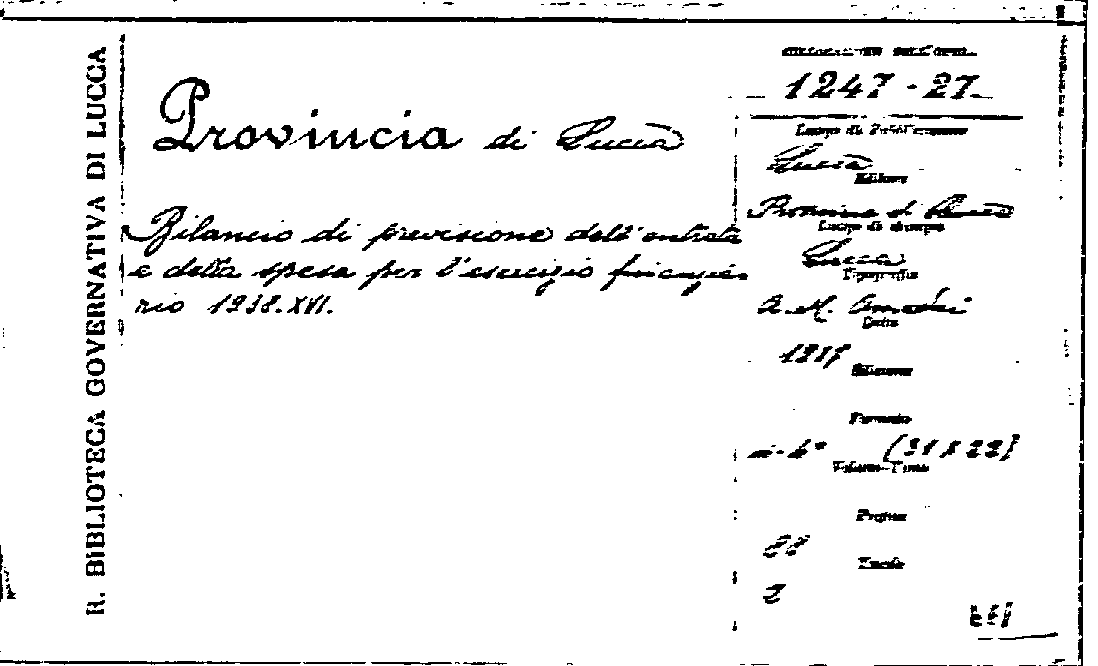 R. BIBLIOTECA GOVERNATIVA DI LUCCA
Provincia di Lucca
Bilancio di previsione dell'entrata
e della spesa per l'esercizio finanzia-
rio 1938.XVI.
COLLOCAZIONE DELL'OPERA
1247-27
Luogo di Pubblicazione
Lucca
Editore
Provincia di Lucca
Luogo di stampa
Lucca
Tipografia
A. M. Amedei
Data
1937
Edizione
Formato
in-4° (31 X 22)
Volume-Tomo
Pagine
88
Tavole
2